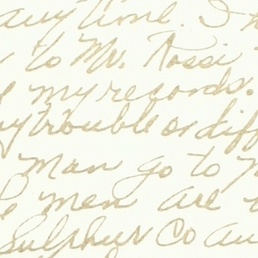 any time. I
to Mr. Rossi
my records.
trouble or diff
man go to
men are
Sulphur Co au